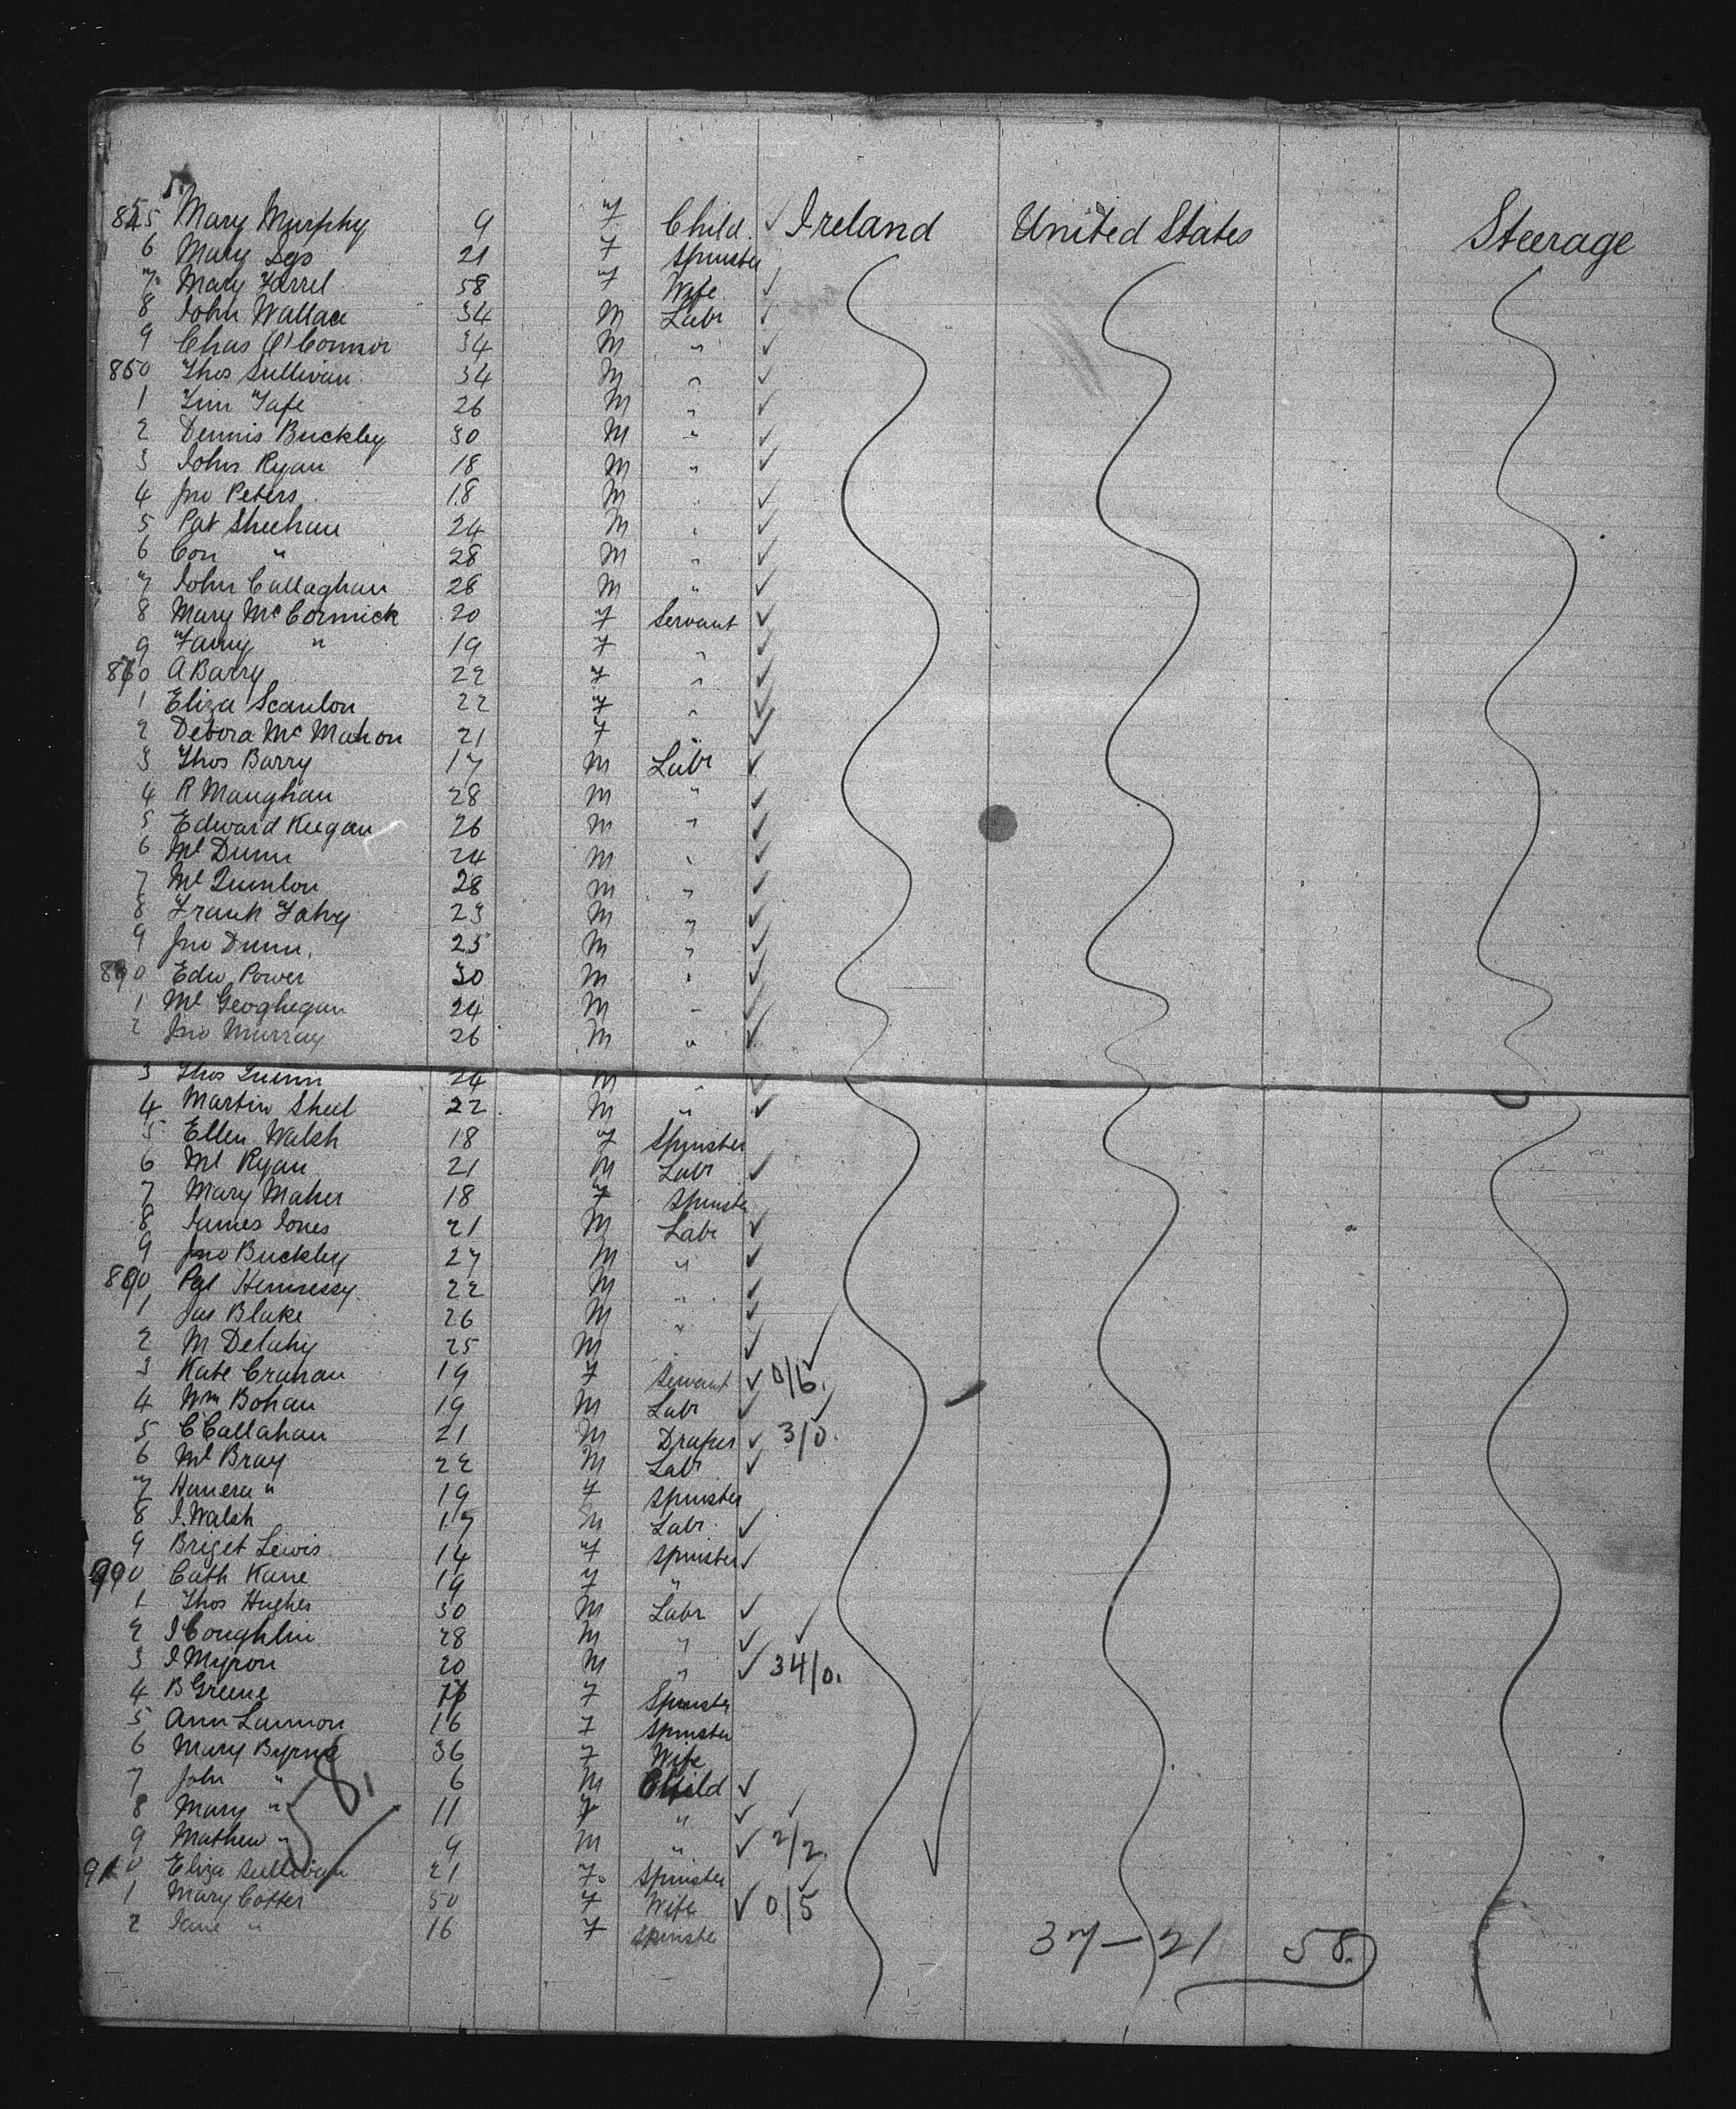 855 Mary Murphy 9 F Child ✓ Ireland United States Steerage
6 Mary Legs 21 F Spinster
7 Mary Farrel 58 F Wife ✓
8 John Wallace 34 M Labr ✓
9 Chas O'Connor 34 M " ✓
860 Thos Sullivan 34 M " ✓
1 26 M " ✓
2 Dennis Buckley 30 M " ✓
3 John Ryan 18 M " ✓
4 Jno Peters 18 M " ✓
5 Pat Sheehan 24 M " ✓
6 Con " 28 M " ✓
7 John Callaghan 28 M " ✓
8 Mary McCormick 20 F Servant ✓
9 Fanny " 19 F " ✓
870 A Barry 22 F " ✓
1 Eliza Scanlon 22 F " ✓
2 Debora McMahon 21 F " ✓
3 Thos Barry 17 M Labr ✓
4 R Maughan 28 M " ✓
5 Edward Keegan 26 M " ✓
6 Ml Dunn 24 M " ✓
7 Ml Quinlon 28 M " ✓
8 Frank Fahey 23 M " ✓
9 Jno Dunn 25 M " ✓
880 Edw Power 30 M " ✓
1 Ml Geoghegan 24 M " ✓
2 Jno Murray 26 M " ✓
3 Thos Quinn 24 M " ✓
4 Martin Sheel 22 M " ✓
5 Ellen Walsh 18 F Spinster
6 Ml Ryan 21 M Labr ✓
7 Mary Maher 18 F Spinster
8 James Jones 21 M Labr ✓
9 Jno Buckley 27 M " ✓
890 Pat Hennessy 22 M " ✓
1 Jas Blake 26 M " ✓
2 M Delahy 25 M ✓
3 Kate Crahan 19 F Servant ✓ 0/6.
4 Wm Bohan 19 M Labr ✓
5 C Callahan 21 M Draper ✓ 3/0.
6 Ml Bray 22 M Labr ✓
7 Honera " 19 F Spinster
8 J. Walsh 17 M Labr ✓
9 Briget Lewis 14 F Spinster ✓
900 Cath Kane 19 F "
1 Thos Hughes 30 M Labr ✓
2 J Coughlin 28 M " ✓
3 J Myron 20 M " ✓ 34/0.
4 B Greene F Spinster
5 Ann Lannon 16 F Spinster
6 Mary Byrne 36 F Wife
7 John " 6 M Child ✓
8 Mary " 11 F " ✓
9 Mathew " 9 M " ✓ 2/2
910 Eliza Sullivan 21 F Spinster
1 Mary Cotter 50 F Wife ✓ 0/5
2 Jane " 16 F Spinster
58.
37 – 21 58.